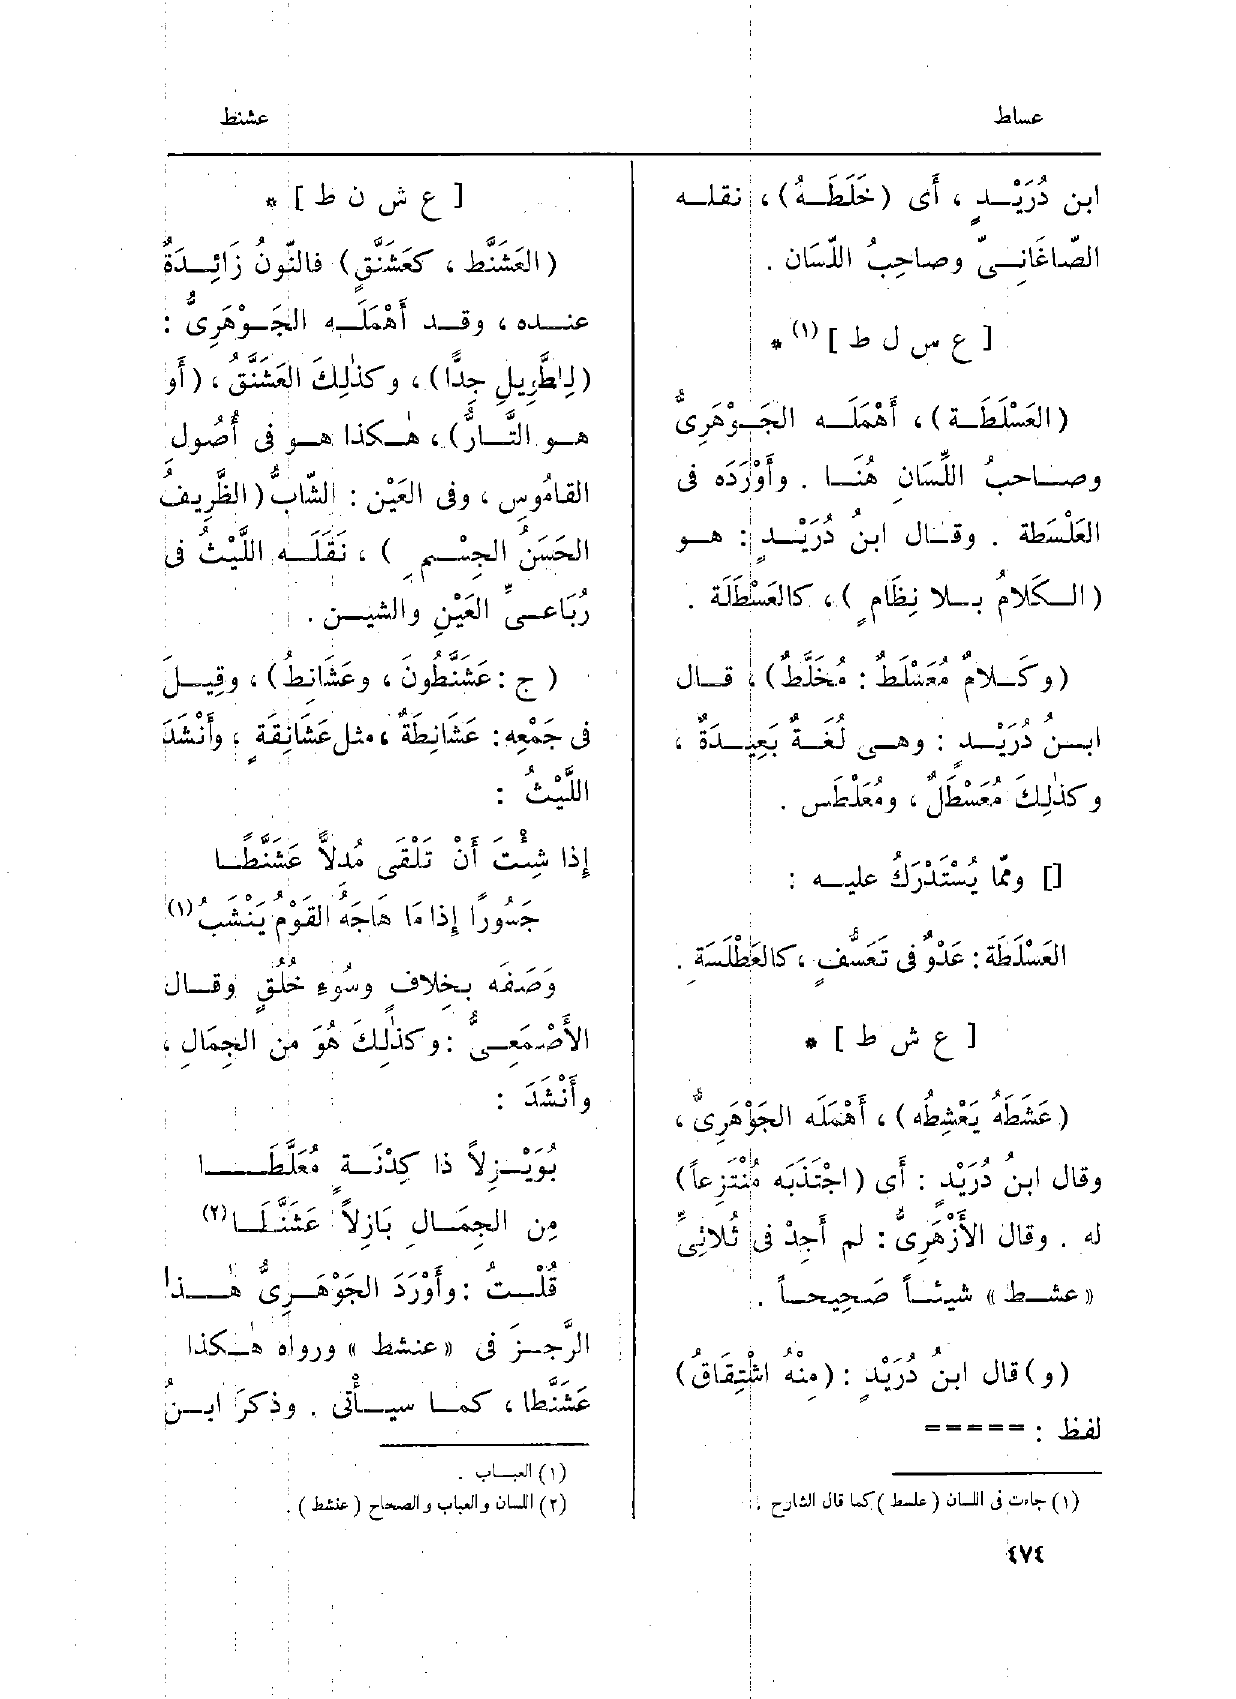 عساط
عشنط
ابن دُرَيْــدٍ ، أَى (خَلَطَــهُ) ، نقلــه
الصّاغَانِــىّ وصاحِبُ اللِّسَان .
[ ع س ل ط ] (١) *
(العَسْلَطَــة) ، أَهْمَلَــه الجَــوْهَرِىُّ
وصــاحبُ اللِّسَانِ هُنَــا . وأَوْرَدَه فى
العَلْسَطة . وقــال ابنُ دُرَيْــدٍ : هــو
(الــكَلامُ بــلا نِظَامٍ ) ، كالعَسْطَلَة .
(وكَــلامٌ مُعَسْلَطٌ : مُخَلَّطٌ) ، قــال
ابــنُ دُرَيْــدٍ : وهــى لُغَــةٌ بَعِيــدَةٌ ،
وكذٰلِكَ مُعَسْطَلٌ ، ومُعَلْطَس .
[] وممّا يُسْتَدْرَكُ عليــه :
العَسْلَطَة : عَدْوٌ فى تَعَسُّفٍ ، كالعَطْلَسَةِ .
[ ع ش ط ] *
(عَشَطَهُ يَعْشِطُه) ، أَهْمَلَه الجَوْهَرِىُّ ،
وقال ابنُ دُرَيْدٍ : أَى (اجْتَذَبَه مُنْتَزِعاً)
له . وقال الأَزْهَرِىُّ : لم أَجِدْ فى ثُلاثِىِّ
«عشــط» شيئــاً صَحِيحــاً .
(و) قال ابنُ دُرَيْدٍ : (مِنْهُ اشْتِقَاقُ)
لفظ : =====
(١) جاءت فى اللسان (علسط) كما قال الشارح .
٤٧٤
[ ع ش ن ط ] *
(العَشَنَّط ، كعَشَنَّقٍ) فالنّونُ زَائِــدَةٌ
عنــده ، وقــد أَهْمَلَــه الجَــوْهَرِىُّ :
(لِلطَّوِيلِ جِدًّا) ، وكذٰلِكَ العَشَنَّقُ ، (أَو
هــو التَّــارُّ) ، هٰــكذا هــو فى أُصُولِ
القامُوسِ ، وفى العَيْنِ : الشّابُّ (الظَّرِيفُ
الحَسَنُ الجِسْــمِ ) ، نَقَلَــه اللَّيْثُ فى
رُبَاعــىِّ العَيْنِ والشيــن .
( ج : عَشَنَّطُونَ ، وعَشَانِطُ) ، وقِيــلَ
فى جَمْعِه : عَشَانِطَةٌ ، مثل عَشَانِقَةٍ ، وأَنْشَدَ
اللَّيْثُ :
إِذا شِئْتَ أَنْ تَلْقَى مُدِلاًّ عَشَنَّطًــا
جَسُورًا إِذا مَا هَاجَهُ القَوْمُ يَنْشَبُ (١)
وَصَفَه بخِلافٍ وسُوءِ خُلُقٍ وقــال
الأَصْمَعِــىُّ : وكذٰلِكَ هُوَ من الجِمَالِ ،
وأَنْشَدَ :
بُوَيْــزِلاً ذا كِدْنَــةٍ مُعَلَّطَــا
مِن الجِمَــالِ بَازِلاً عَشَنَّطَــا (٢)
قُلْــتُ : وأَوْرَدَ الجَوْهَــرِىُّ هٰــذا
الرَّجــزَ فى «عنشط» ورواه هٰــكذا
عَشَنَّطا ، كمــا سيــأْتى . وذكرَ ابــنُ
(١) العبــاب .
(٢) اللسان والعباب والصحاح (عنشط ) .